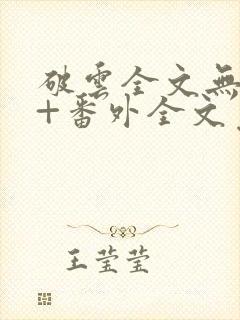 破雲全文無
+番外全文
王莹莹